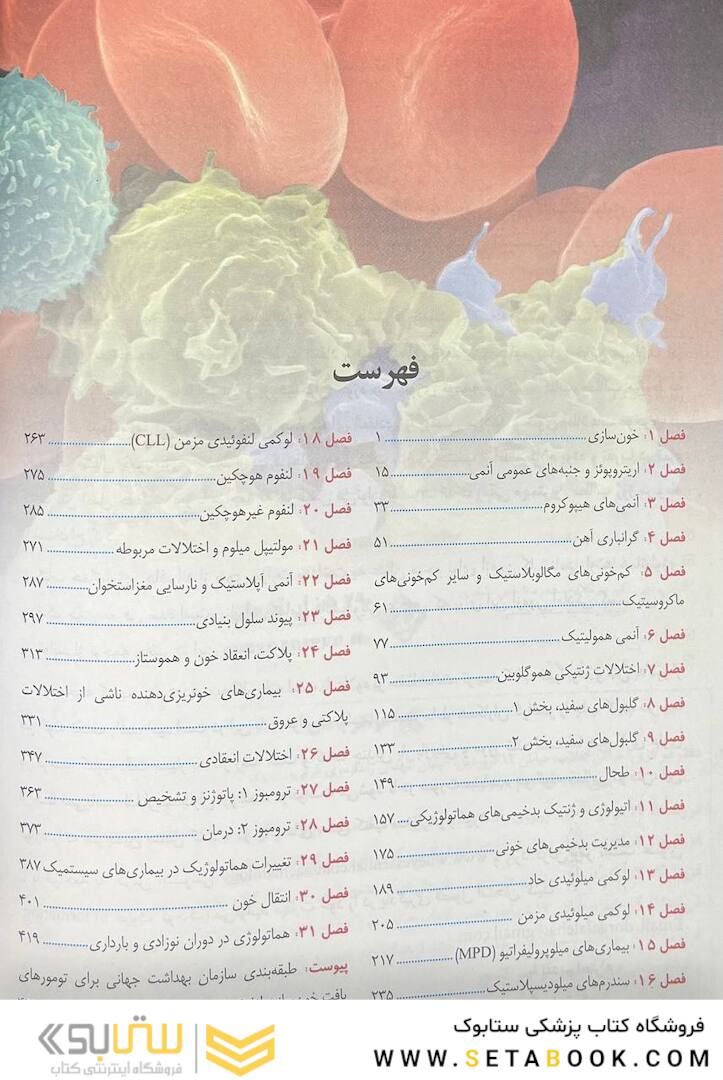 فهرست
فصل ۱: خون‌سازی ۱
فصل ۲: اریتروپوئز و جنبه‌های عمومی آنمی ۱۵
فصل ۳: آنمی‌های هیپوکروم ۳۳
فصل ۴: گرانباری آهن ۵۱
فصل ۵: کم‌خونی‌های مگالوبلاستیک و سایر کم‌خونی‌های
ماکروسیتیک ۶۱
فصل ۶: آنمی همولیتیک ۷۷
فصل ۷: اختلالات ژنتیکی هموگلوبین ۹۳
فصل ۸: گلبول‌های سفید، بخش ۱ ۱۱۵
فصل ۹: گلبول‌های سفید، بخش ۲ ۱۳۳
فصل ۱۰: طحال ۱۴۹
فصل ۱۱: اتیولوژی و ژنتیک بدخیمی‌های هماتولوژیکی ۱۵۷
فصل ۱۲: مدیریت بدخیمی‌های خونی ۱۷۵
فصل ۱۳: لوکمی میلوئیدی حاد ۱۸۹
فصل ۱۴: لوکمی میلوئیدی مزمن ۲۰۵
فصل ۱۵: بیماری‌های میلوپرولیفراتیو (MPD) ۲۱۷
فصل ۱۶: سندرم‌های میلودیسپلاستیک ۲۳۵
فصل ۱۸: لوکمی لنفوئیدی مزمن (CLL) ۲۶۳
فصل ۱۹: لنفوم هوچکین ۲۷۵
فصل ۲۰: لنفوم غیرهوچکین ۲۸۵
فصل ۲۱: مولتیپل میلوم و اختلالات مربوطه ۲۷۱
فصل ۲۲: آنمی آپلاستیک و نارسایی مغزاستخوان ۲۸۷
فصل ۲۳: پیوند سلول بنیادی ۲۹۷
فصل ۲۴: پلاکت، انعقاد خون و هموستاز ۳۱۳
فصل ۲۵: بیماری‌های خونریزی‌دهنده ناشی از اختلالات
پلاکتی و عروق ۳۳۱
فصل ۲۶: اختلالات انعقادی ۳۴۷
فصل ۲۷: ترومبوز ۱: پاتوژنز و تشخیص ۳۶۳
فصل ۲۸: ترومبوز ۲: درمان ۳۷۳
فصل ۲۹: تغییرات هماتولوژیک در بیماری‌های سیستمیک ۳۸۷
فصل ۳۰: انتقال خون ۴۰۱
فصل ۳۱: هماتولوژی در دوران نوزادی و بارداری ۴۱۹
پیوست: طبقه‌بندی سازمان بهداشت جهانی برای تومورهای
فروشگاه کتاب پزشکی ستابوک
WWW.SETABOOK.COM
ستابوک
فروشگاه اینترنتی کتاب